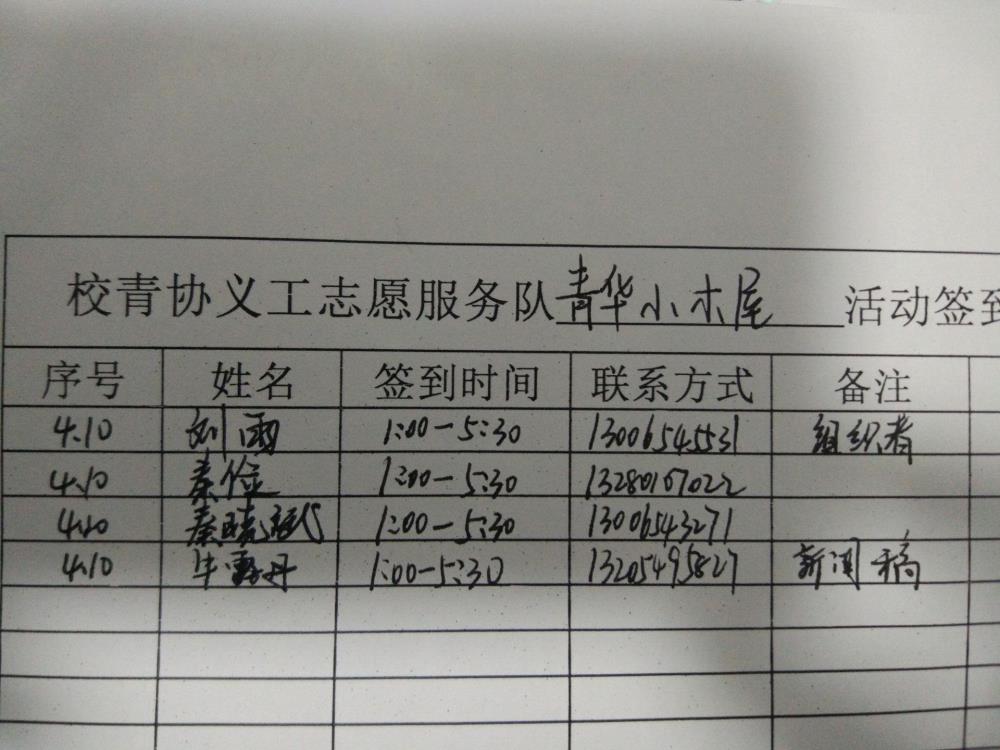 校青协义工志愿服务队青华小木屋 活动签到
序号 姓名 签到时间 联系方式 备注
4.10 刘雨 1:00-5:30 13006545531 组织者
4.10 秦俭 1:00-5:30 13280167022
4.10 秦晓 1:00-5:30 13006543271
4.10 牛雪丹 1:00-5:30 13205495827 新闻稿